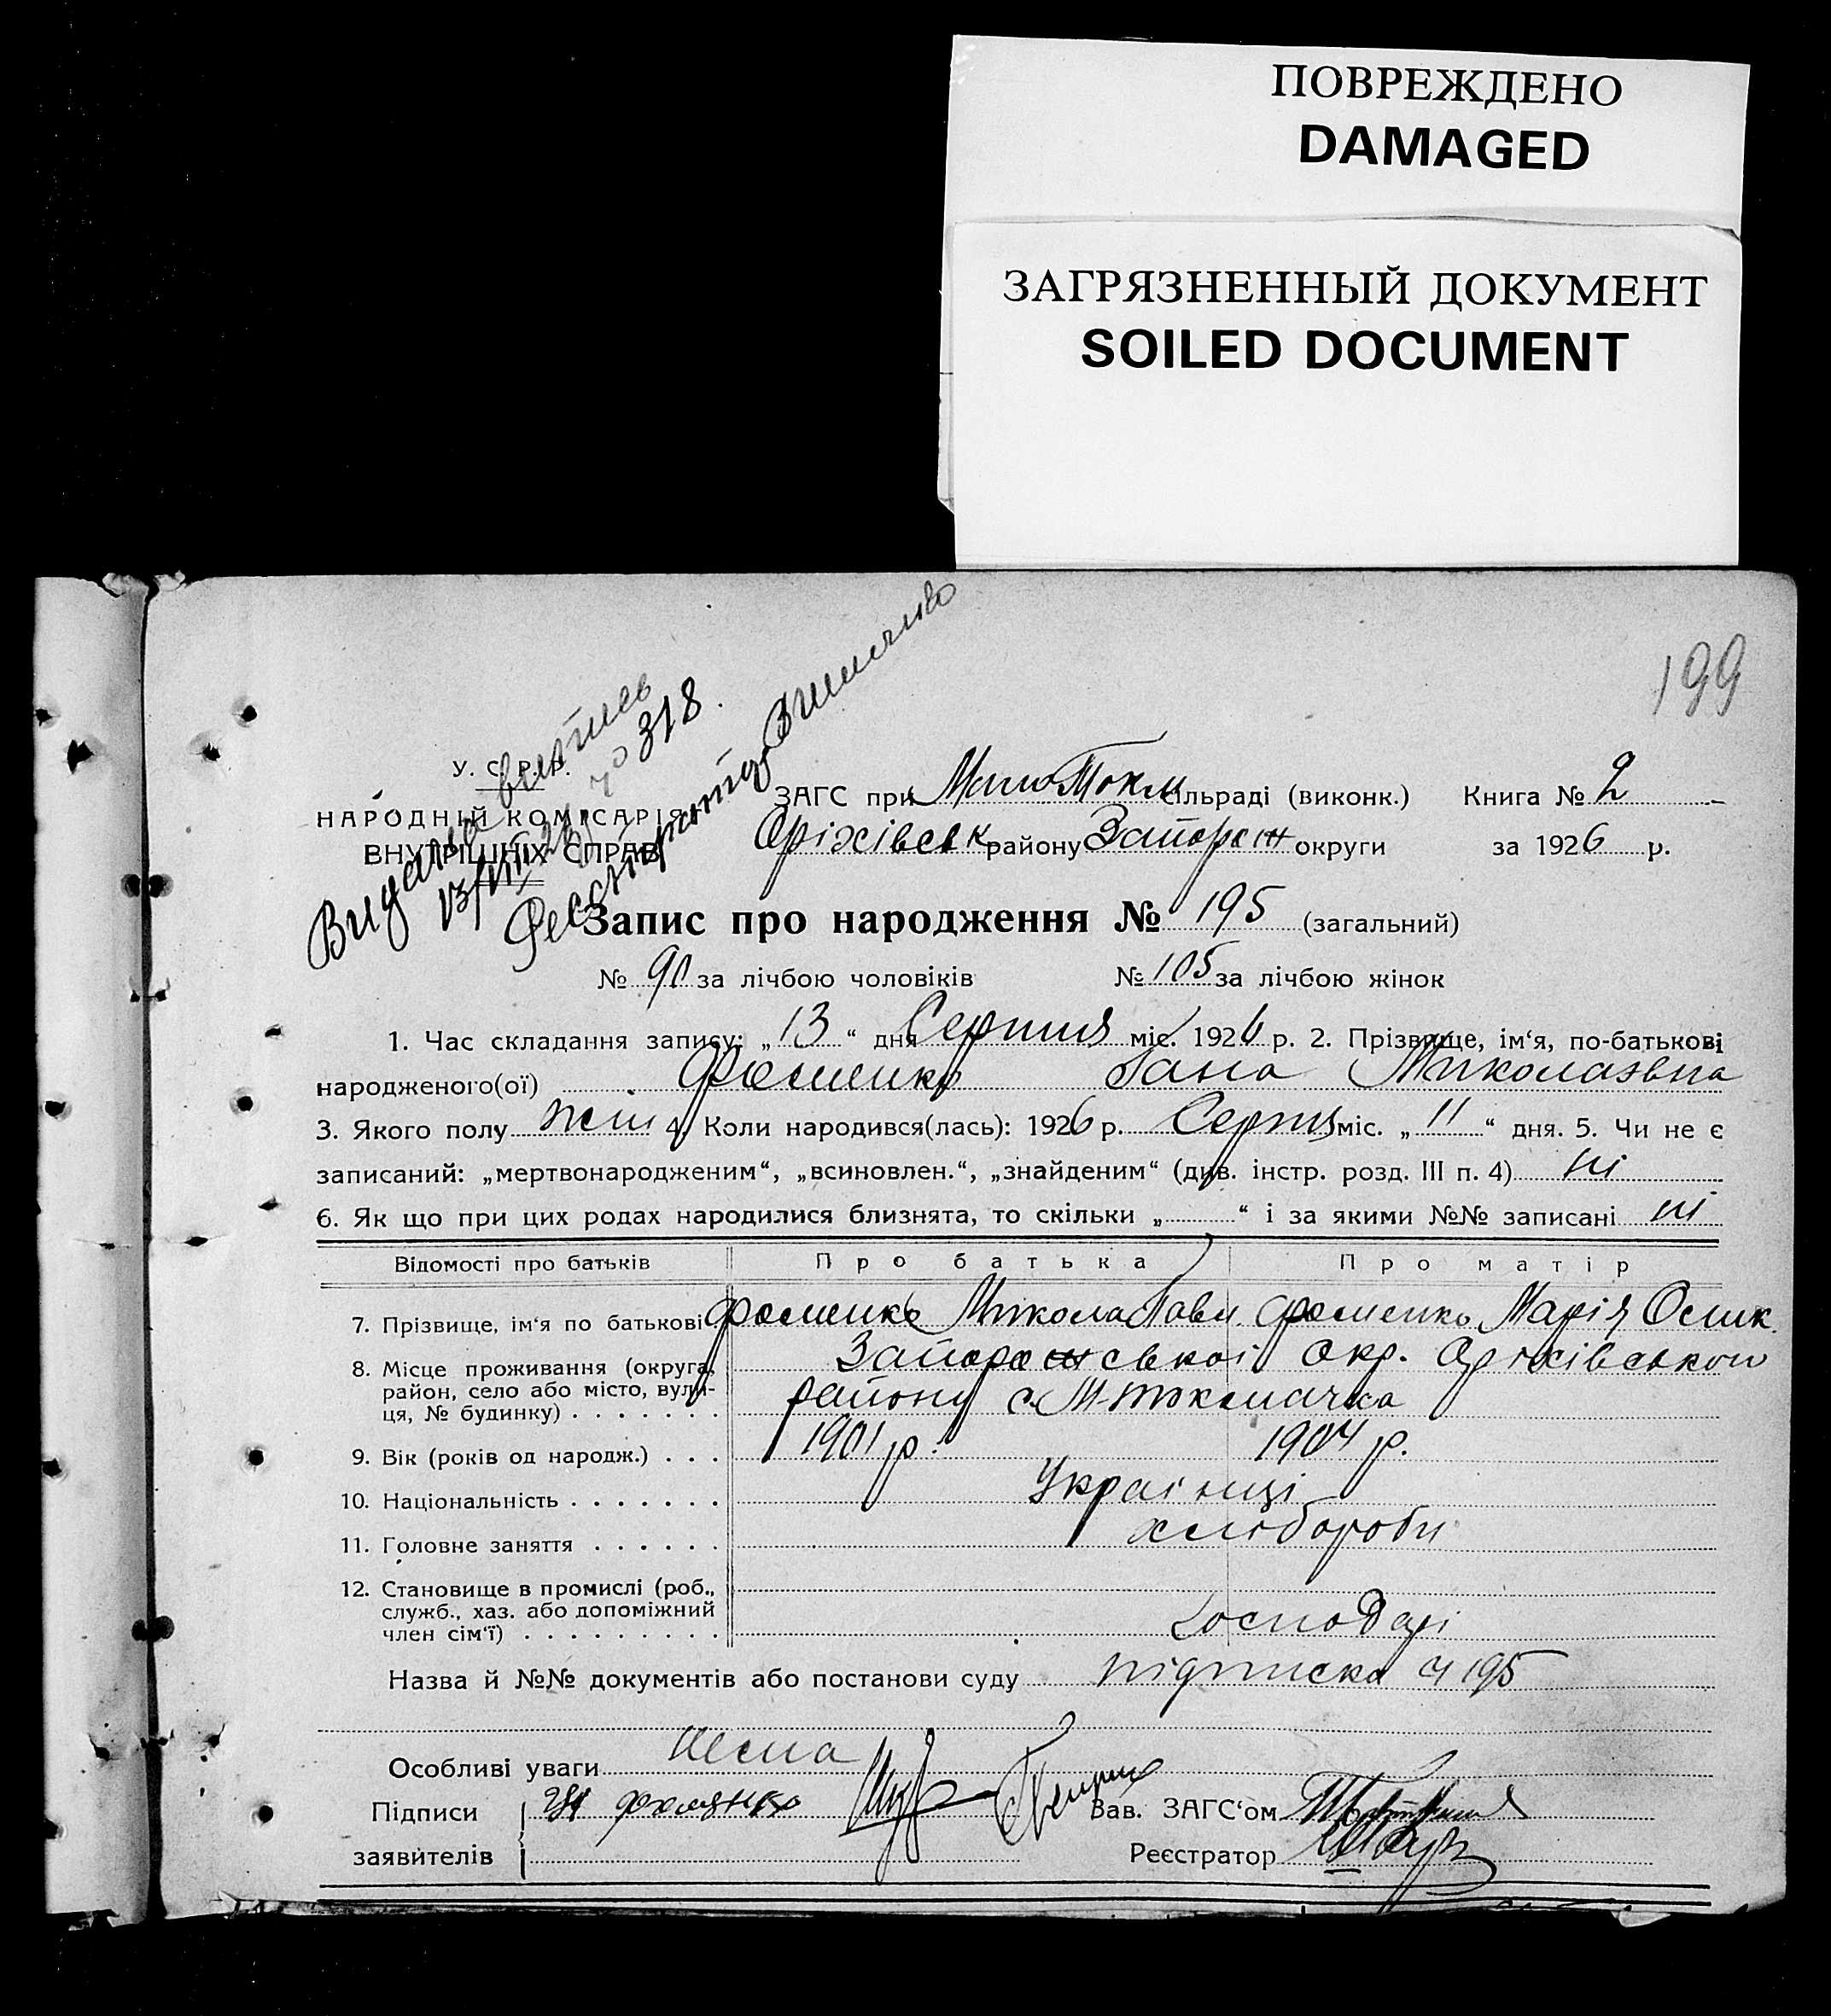 ПОВРЕЖДЕНО
DAMAGED
ЗАГРЯЗНЕННЫЙ ДОКУМЕНТ
SOILED DOCUMENT
199
Видана випись
13/VIII 26 ч° 318.
У. С. Р. Р.
НАРОДНІЙ КОМІСАРІЯТ
ВНУТРІШНІХ СПРАВ
ЗАГС при Мало Токм сільраді (виконк.) Книга № 2
Оріхівськ району Запорож округи за 1926 р.
Запис про народження № 195 (загальний)
№ 90 за лічбою чоловіків № 105 за лічбою жінок
1. Час складання запису: „13“ дня Серпня міс. 1926 р. 2. Прізвище, ім‘я, по-батькові
народженого(ої) Фоменко Гана Миколаэвна
3. Якого полу жін 4. Коли народився(лась): 1926 р. Серпня міс. „11“ дня. 5. Чи не є
записаний: „мертвонародженим“, „всиновлен.“, „знайденим“ (див. інстр. розд. III п. 4) ні
6. Як що при цих родах народилися близнята, то скільки „ “ і за якими №№ записані ні
Відомості про батьків Про батька Про матір
7. Прізвище, ім‘я по батькові Фоменко Микола Павл. Фоменко Марія Осик.
8. Місце проживання (округа, район, село або місто, вули-ця, № будинку) Запорожської окр. Оріхівського
району с. М-Токмачка
9. Вік (років од народж.) 1901 р. 1904 р.
10. Національність Українці
11. Головне заняття хлібороби
12. Становище в промислі (роб., служб., хаз. або допоміжний член сім‘ї) Господарі
Назва й №№ документів або постанови суду підписка ч 195
Особливі уваги Нема
Підписи заявителів Фоменко
Зав. ЗАГС‘ом
Реєстратор